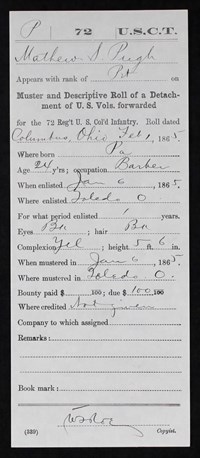 P 72 U.S.C.T.
Mathew S Pugh
Appears with rank of Pvt on
Muster and Descriptive Roll of a Detach-
ment of U. S. Vols. forwarded
for the 72 Reg't U. S. Col'd Infantry. Roll dated
Columbus, Ohio Feb 1, 1865.
Where born Pa
Age 24 y'rs; occupation Barber
When enlisted Jan 6, 1865.
Where enlisted Toledo O
For what period enlisted 1 years.
Eyes Bn; hair Bn
Complexion Yel; height 5 ft. 6 in.
When mustered in Jan 6, 1865.
Where mustered in Toledo O.
Bounty paid $ 100; due $ 100 100
Where credited Not given
Company to which assigned
Remarks:
Book mark:
(339) Copyist.